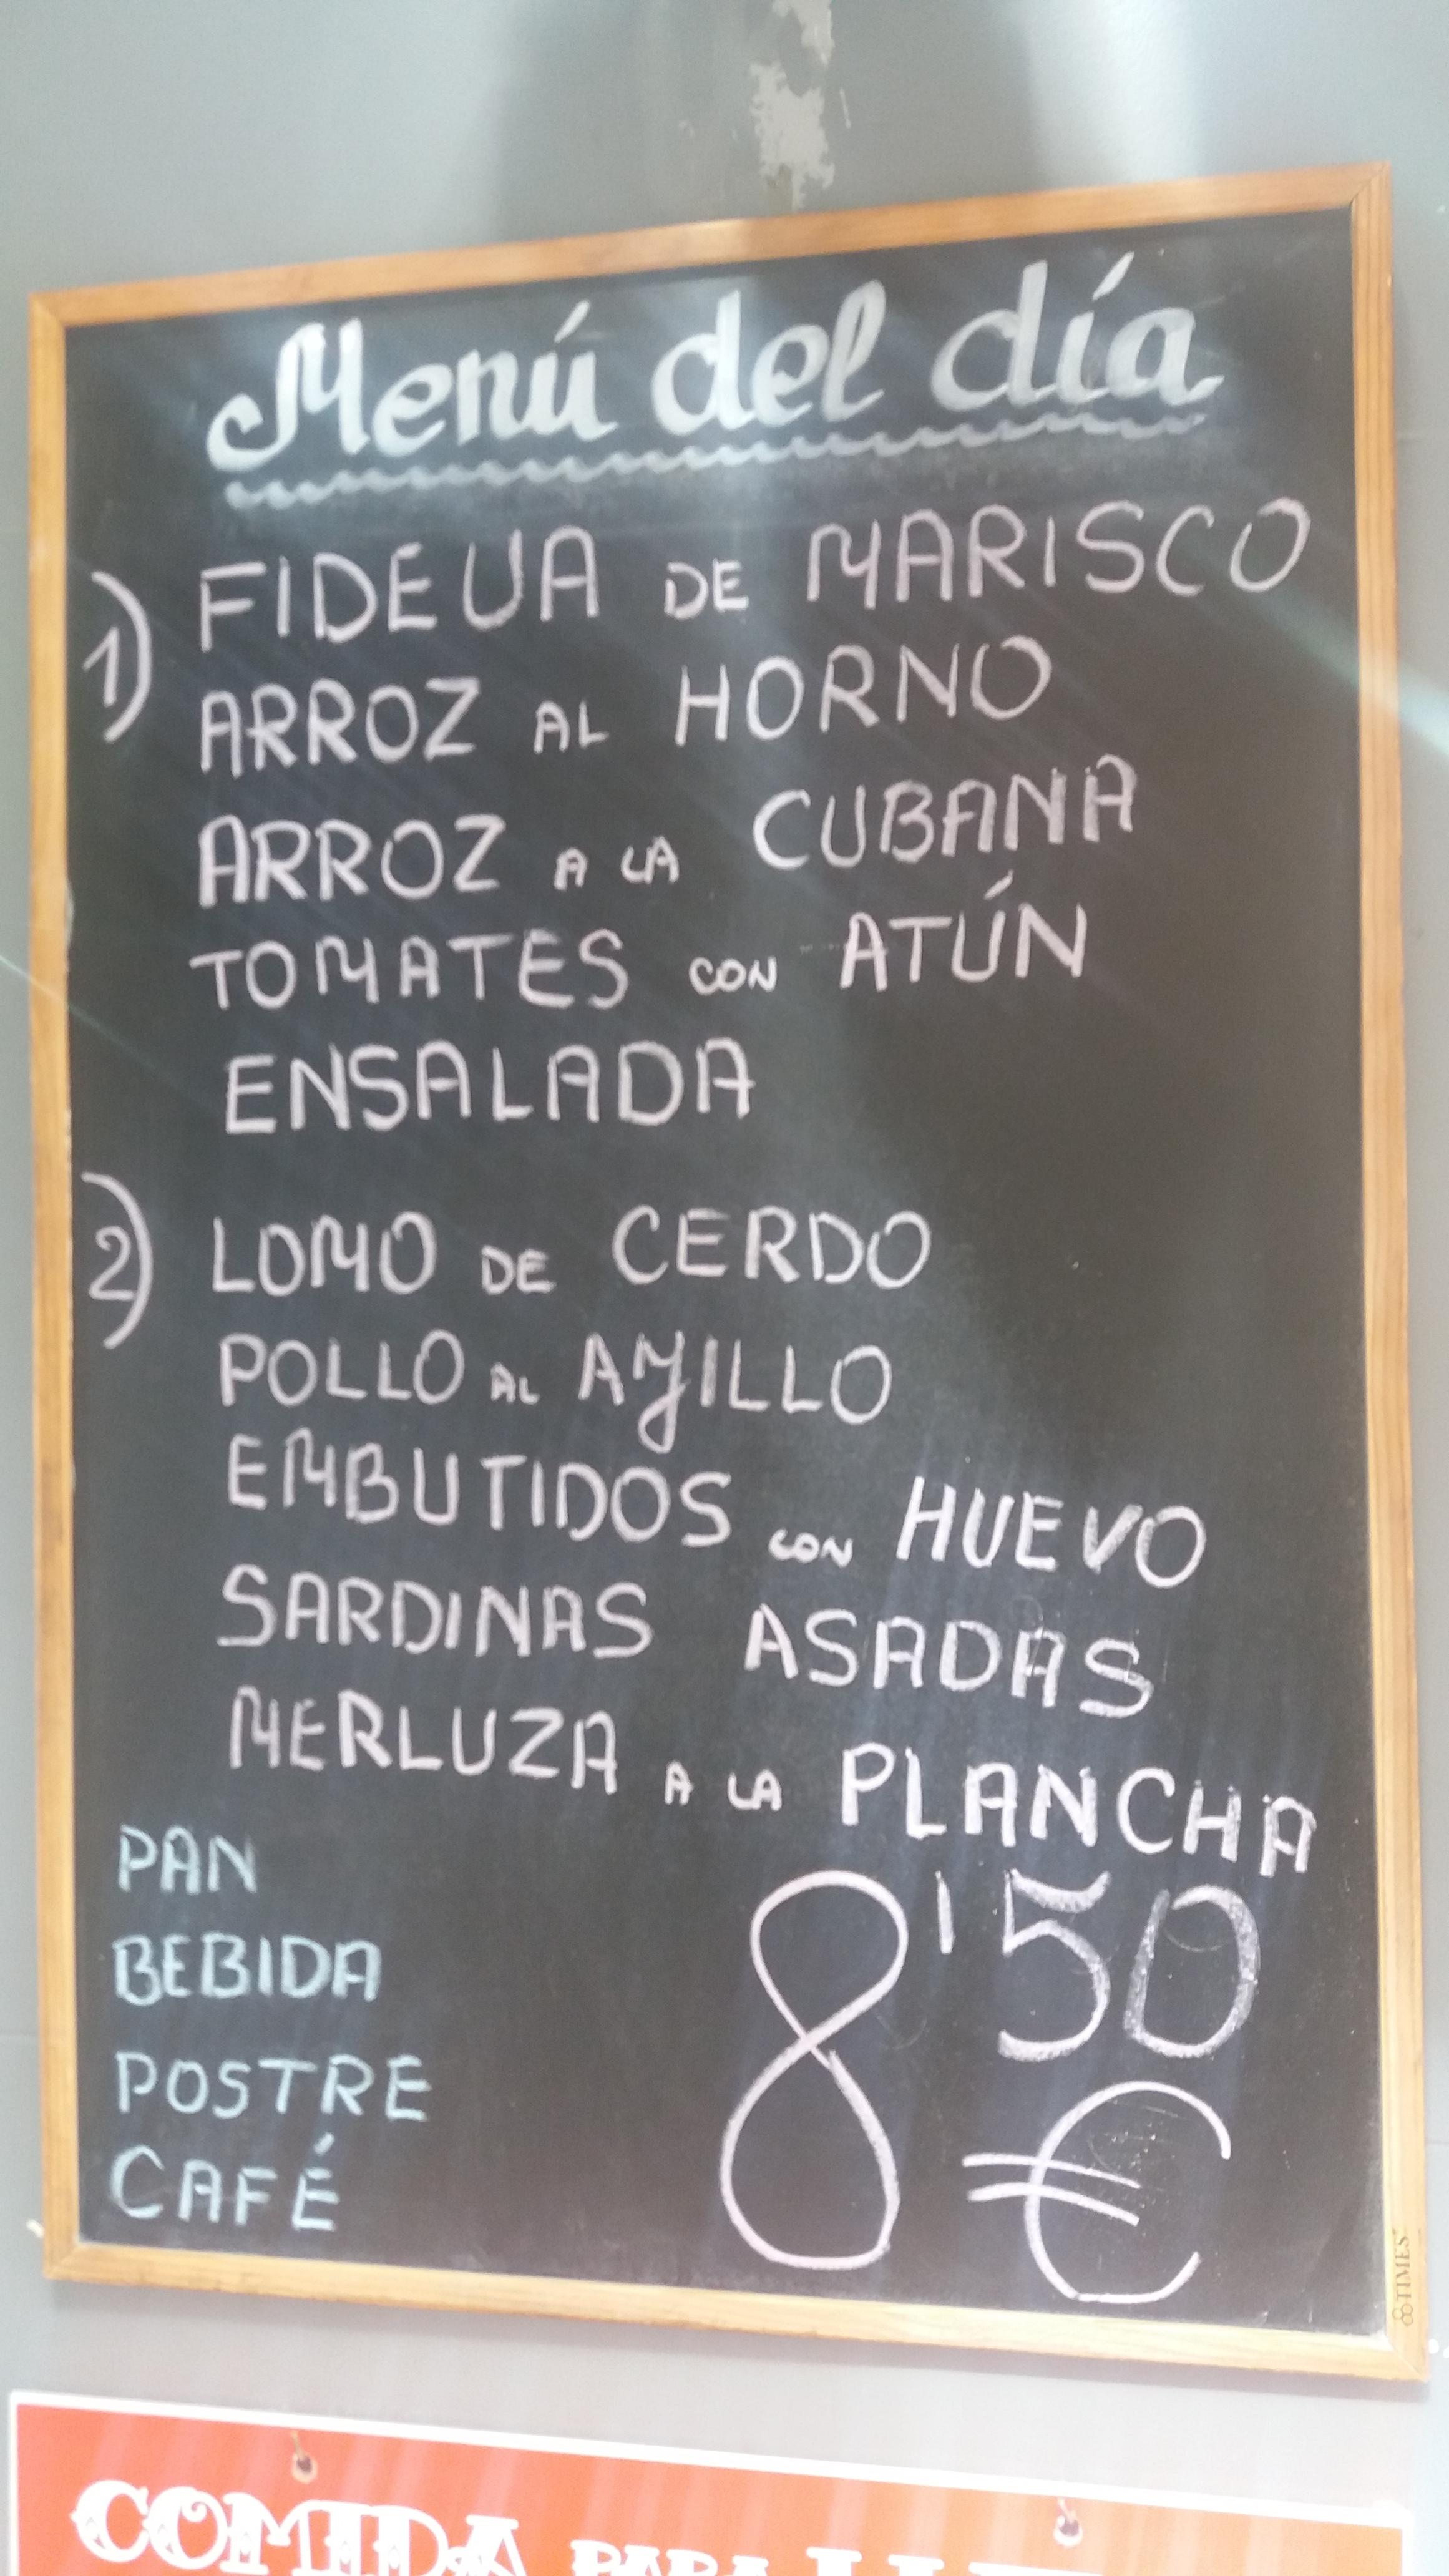 Menú del día
1) FIDEUA DE MARISCO
ARROZ AL HORNO
ARROZ A LA CUBANA
TOMATES CON ATÚN
ENSALADA
2) LOMO DE CERDO
POLLO AL AJILLO
EMBUTIDOS CON HUEVO
SARDINAS ASADAS
MERLUZA A LA PLANCHA
PAN
BEBIDA
POSTRE
CAFÉ
8'50
€
TIMES
COMIDA PARA